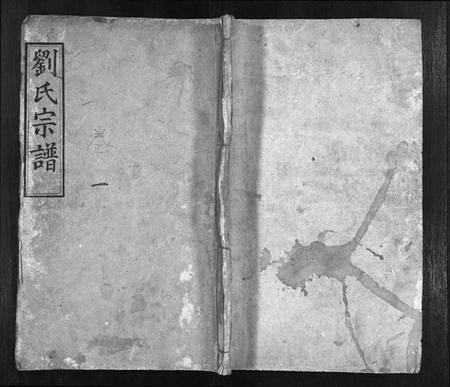 劉氏宗譜
一